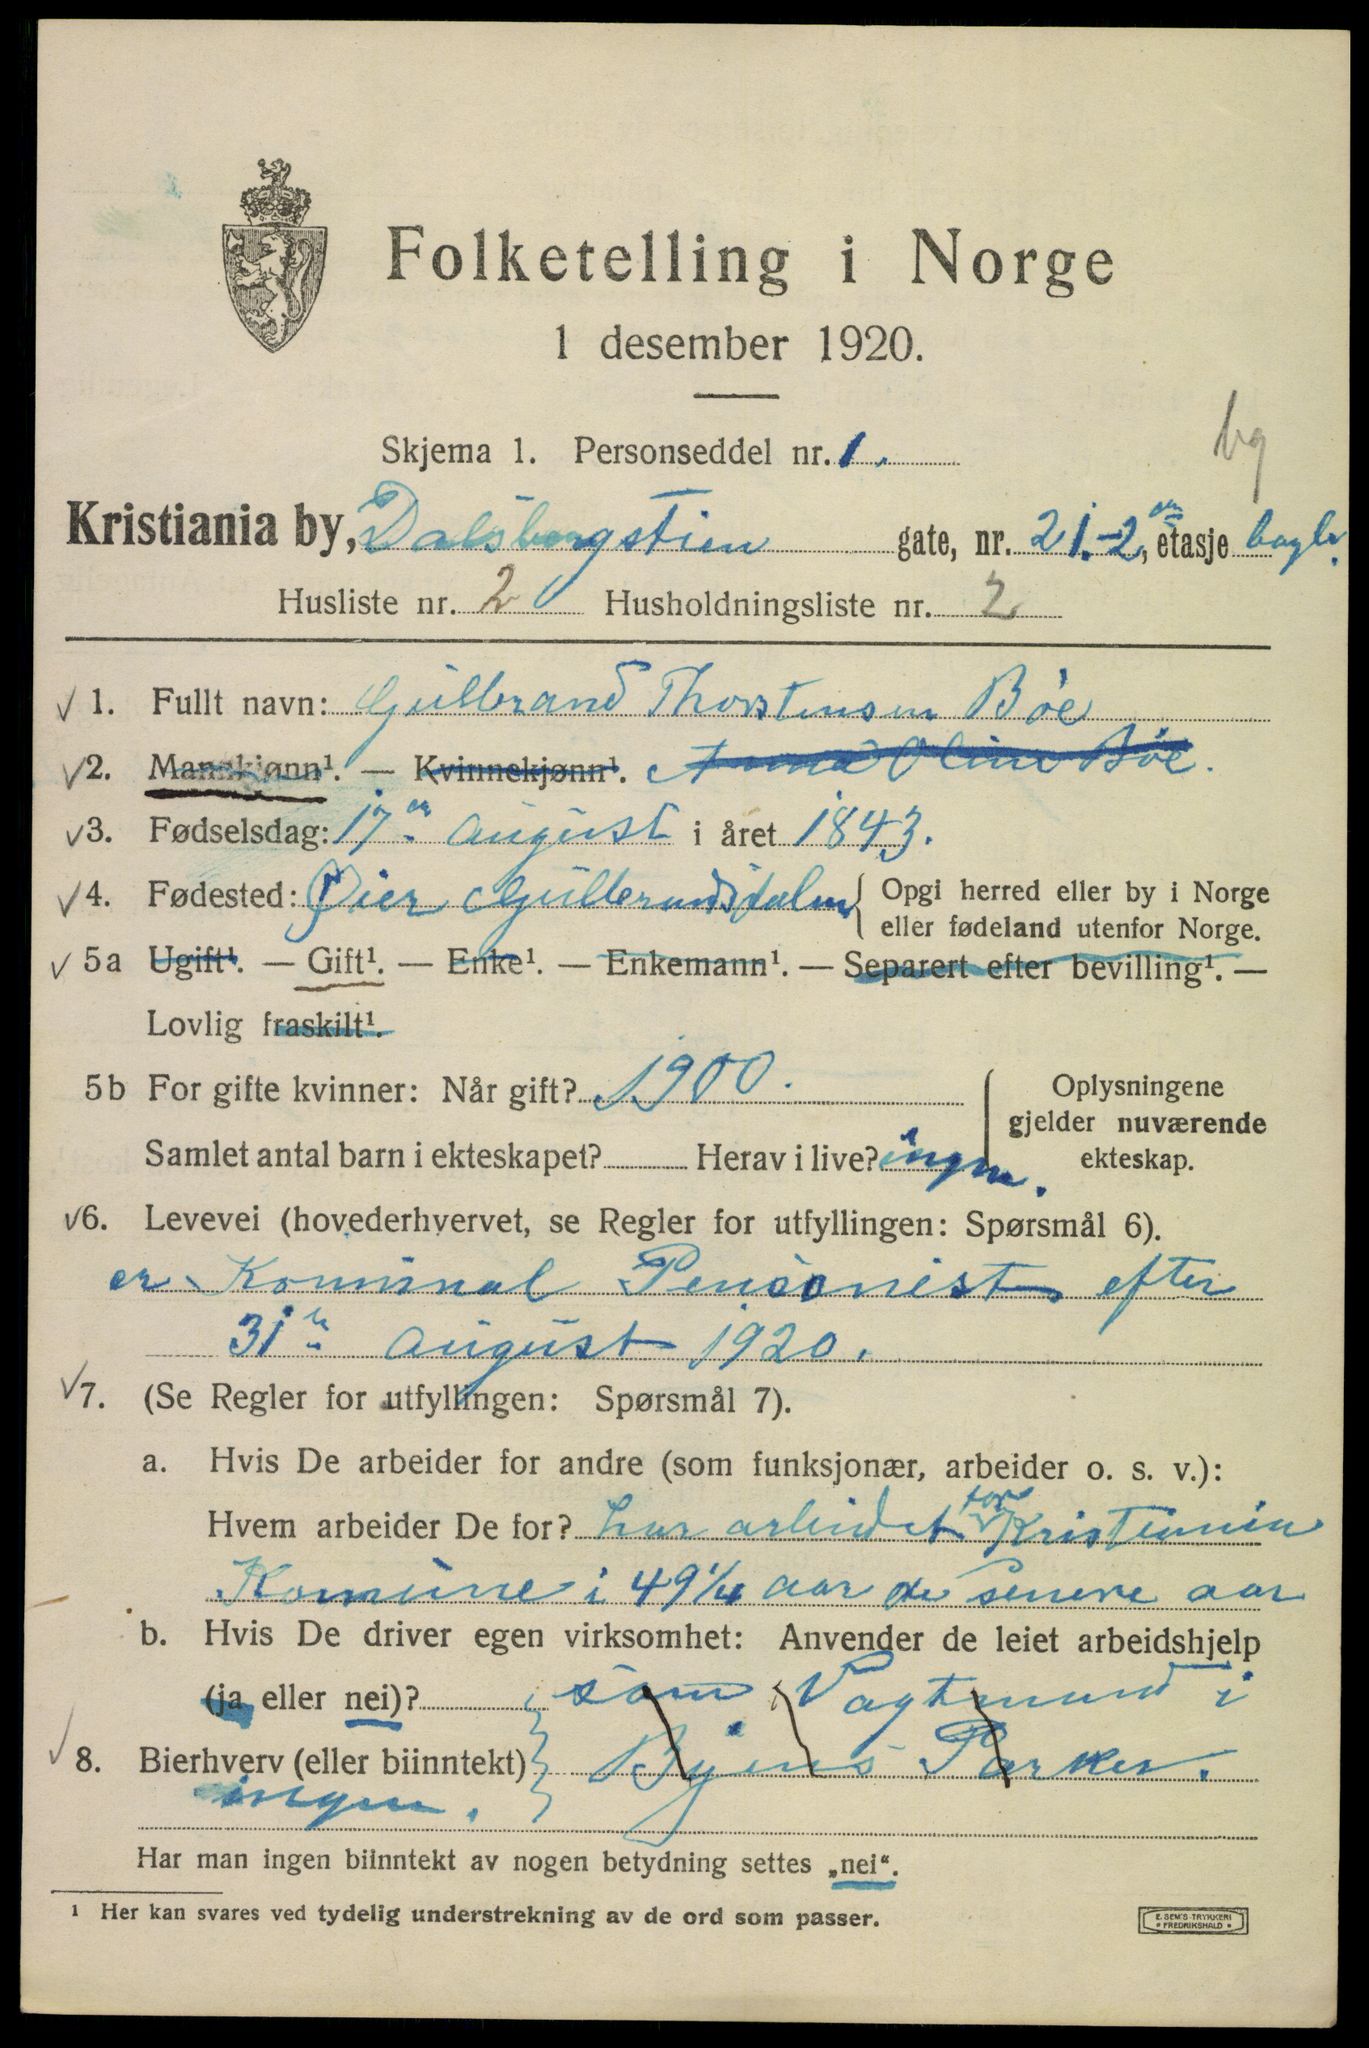 Folketelling i Norge
1 desember 1920.
Skjema 1. Personseddel nr. 1.
bg
Kristiania by, Dalsbergstien gate, nr. 21.-2en, etasje
Husliste nr. 2 Husholdningsliste nr. 2
√ 1. Fullt navn: Gullbrand Thorstensen Bøe
√ 2. Mannkjønn¹. — Kvinnekjønn¹. Anna Oline Bøe.
√ 3. Fødselsdag: 17en august i året 1843.
√ 4. Fødested: Øier Gullbrandsdalen { Opgi herred eller by i Norge
eller fødeland utenfor Norge.
√ 5a Ugift¹. — Gift¹. — Enke¹. — Enkemann¹. — Separert efter bevilling¹. —
Lovlig fraskilt¹.
5b For gifte kvinner: Når gift? 1900. Oplysningene
gjelder nuværende
Samlet antal barn i ekteskapet? Herav i live? ingen. ekteskap.
√ 6. Levevei (hovederhvervet, se Regler for utfyllingen: Spørsmål 6).
er Komunal Pensionist efter
31te august 1920.
√ 7. (Se Regler for utfyllingen: Spørsmål 7).
a. Hvis De arbeider for andre (som funksjonær, arbeider o. s. v.):
Hvem arbeider De for? har arbeidet for Kristiania
Komune i 49 1/4 aar de senere aar
b. Hvis De driver egen virksomhet: Anvender de leiet arbeidshjelp
(ja eller nei)? som Vagtmand i
√ 8. Bierhverv (eller biinntekt) } Byens Parker.
ingen.
Har man ingen biinntekt av nogen betydning settes „nei“.
¹ Her kan svares ved tydelig understrekning av de ord som passer.
E. SEM'S TRYKKERI
* FREDRIKSHALD *